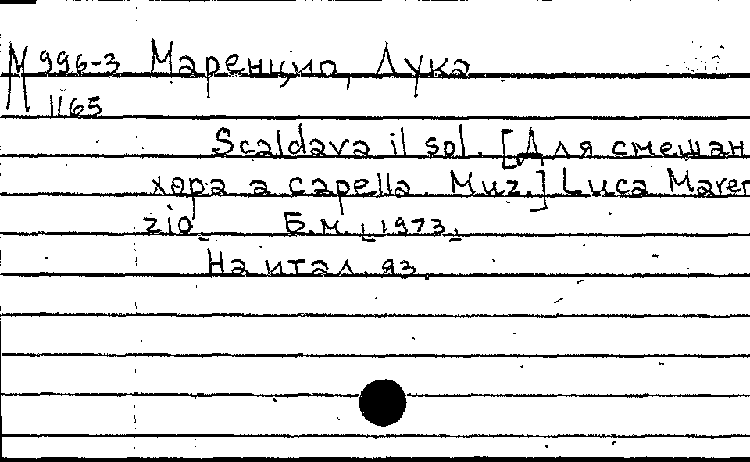 М 996-3 Маренцио, Лука
1165
Scaldava il sol. [Для смешан
хора a capella. Muz.] Luca Maren
zio. Б.м. [1973.
На итал. яз.